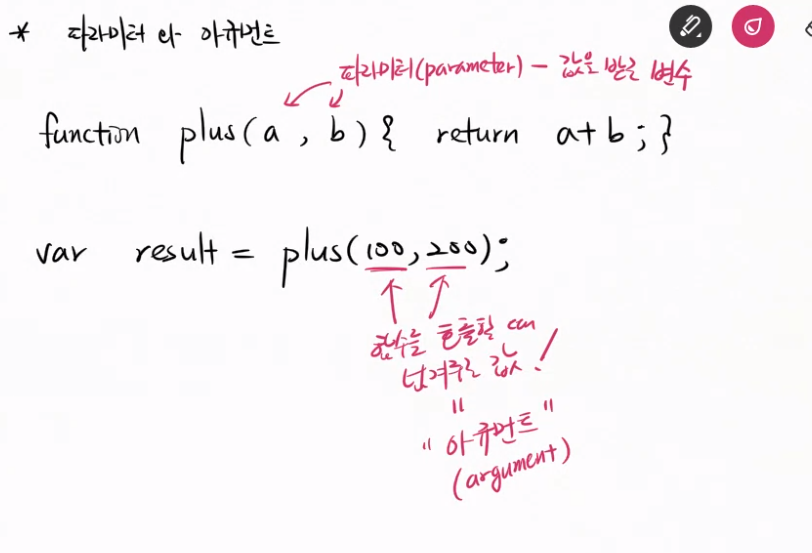 * 파라미터 와 아규먼트
파라미터(parameter) - 값을 받을 변수
function plus(a , b){ return a+b ; }
var result = plus(100, 200);
함수를 호출할 때
넘겨주는 값!
"
"아규먼트"
(argument)